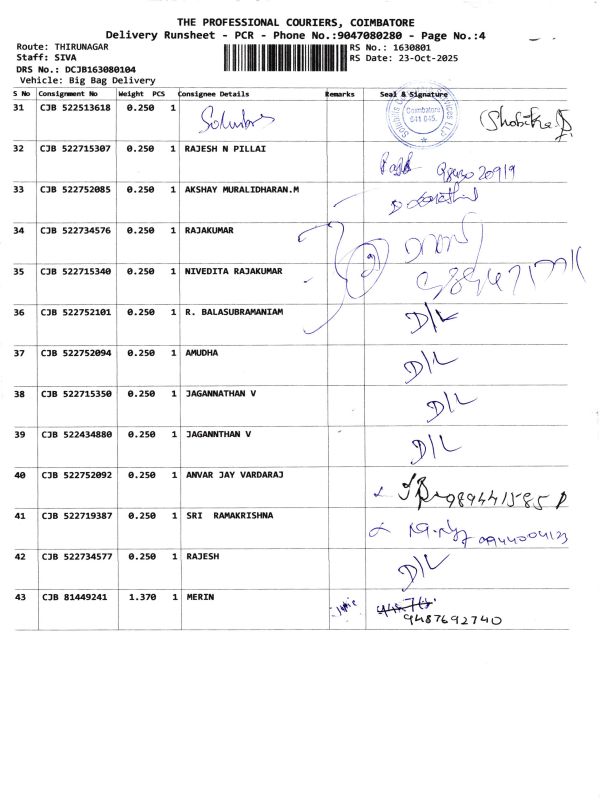 THE PROFESSIONAL COURIERS, COIMBATORE
Delivery Runsheet - PCR - Phone No.:9047080280 - Page No.:4
Route: THIRUNAGAR RS No.: 1630801
Staff: SIVA RS Date: 23-Oct-2025
DRS No.: DCJB163080104
Vehicle: Big Bag Delivery
S No Consignment No Weight PCS Consignee Details Remarks Seal & Signature
31 CJB 522513618 0.250 1 Coimbatore 641 045.
32 CJB 522715307 0.250 1 RAJESH N PILLAI
33 CJB 522752085 0.250 1 AKSHAY MURALIDHARAN.M
34 CJB 522734576 0.250 1 RAJAKUMAR
35 CJB 522715340 0.250 1 NIVEDITA RAJAKUMAR
36 CJB 522752101 0.250 1 R. BALASUBRAMANIAM D/L
37 CJB 522752094 0.250 1 AMUDHA D/L
38 CJB 522715350 0.250 1 JAGANNATHAN V D/L
39 CJB 522434880 0.250 1 JAGANNTHAN V D/L
40 CJB 522752092 0.250 1 ANVAR JAY VARDARAJ
41 CJB 522719387 0.250 1 SRI RAMAKRISHNA
42 CJB 522734577 0.250 1 RAJESH D/L
43 CJB 81449241 1.370 1 MERIN 9487692740